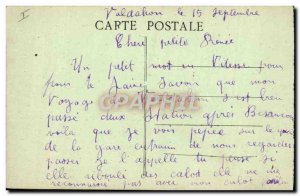 I
Valdahon le 15 Septembre
CARTE POSTALE
Chère petite Renée
Un petit mot en Vitesse pour
pour te faire Savoir que mon
Voyage s'est bien
passé deux Station après Besançon
voila que je vois pépée sur le
de la gare entrain de nous regarder
passer Je l'appelle
elle ribouli des calot elle ne me
reconnaissai pas avec mon calot